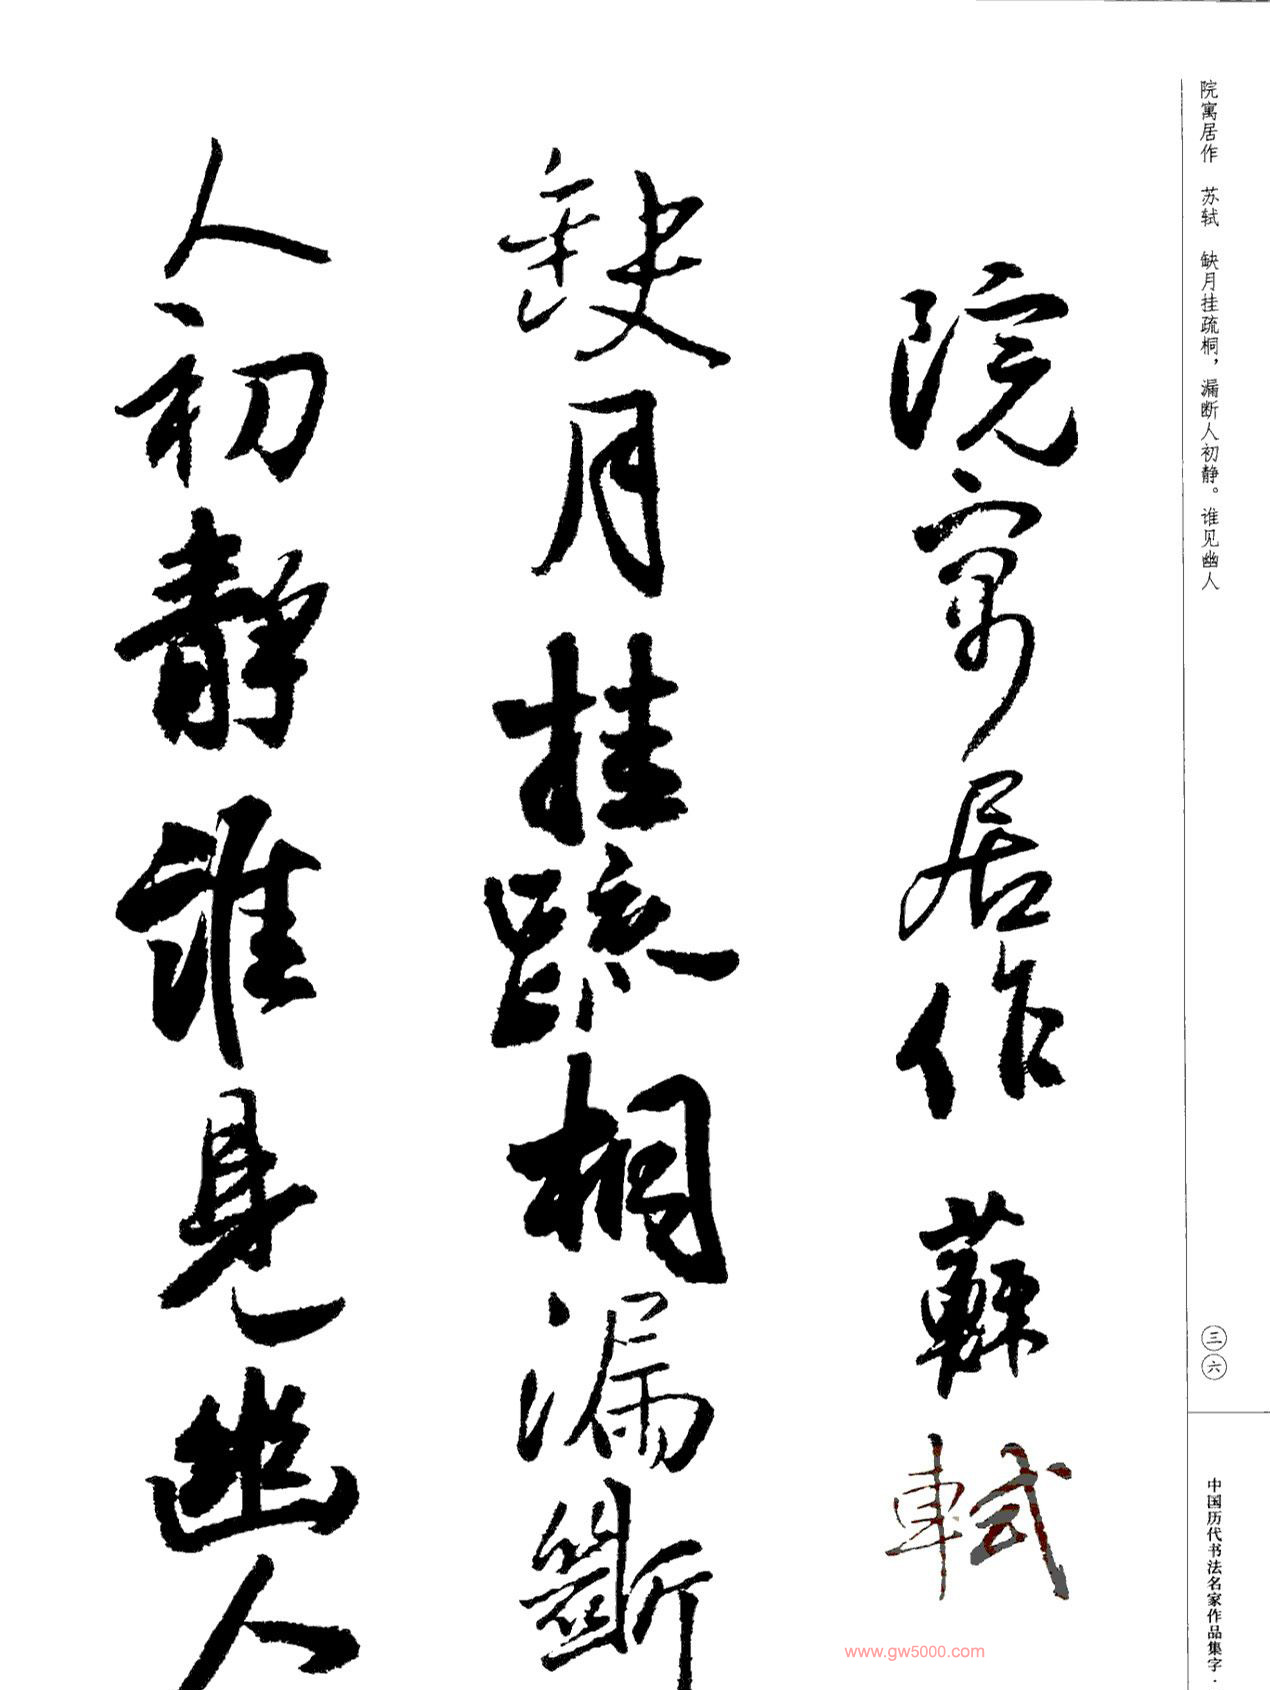 院寓居作 苏轼 缺月挂疏桐，漏断人初静。谁见幽人
三六
中国历代书法名家作品集字·
院寓居作 蘇軾
缺月挂疏桐漏斷
人初靜誰見幽人
www.gw5000.com